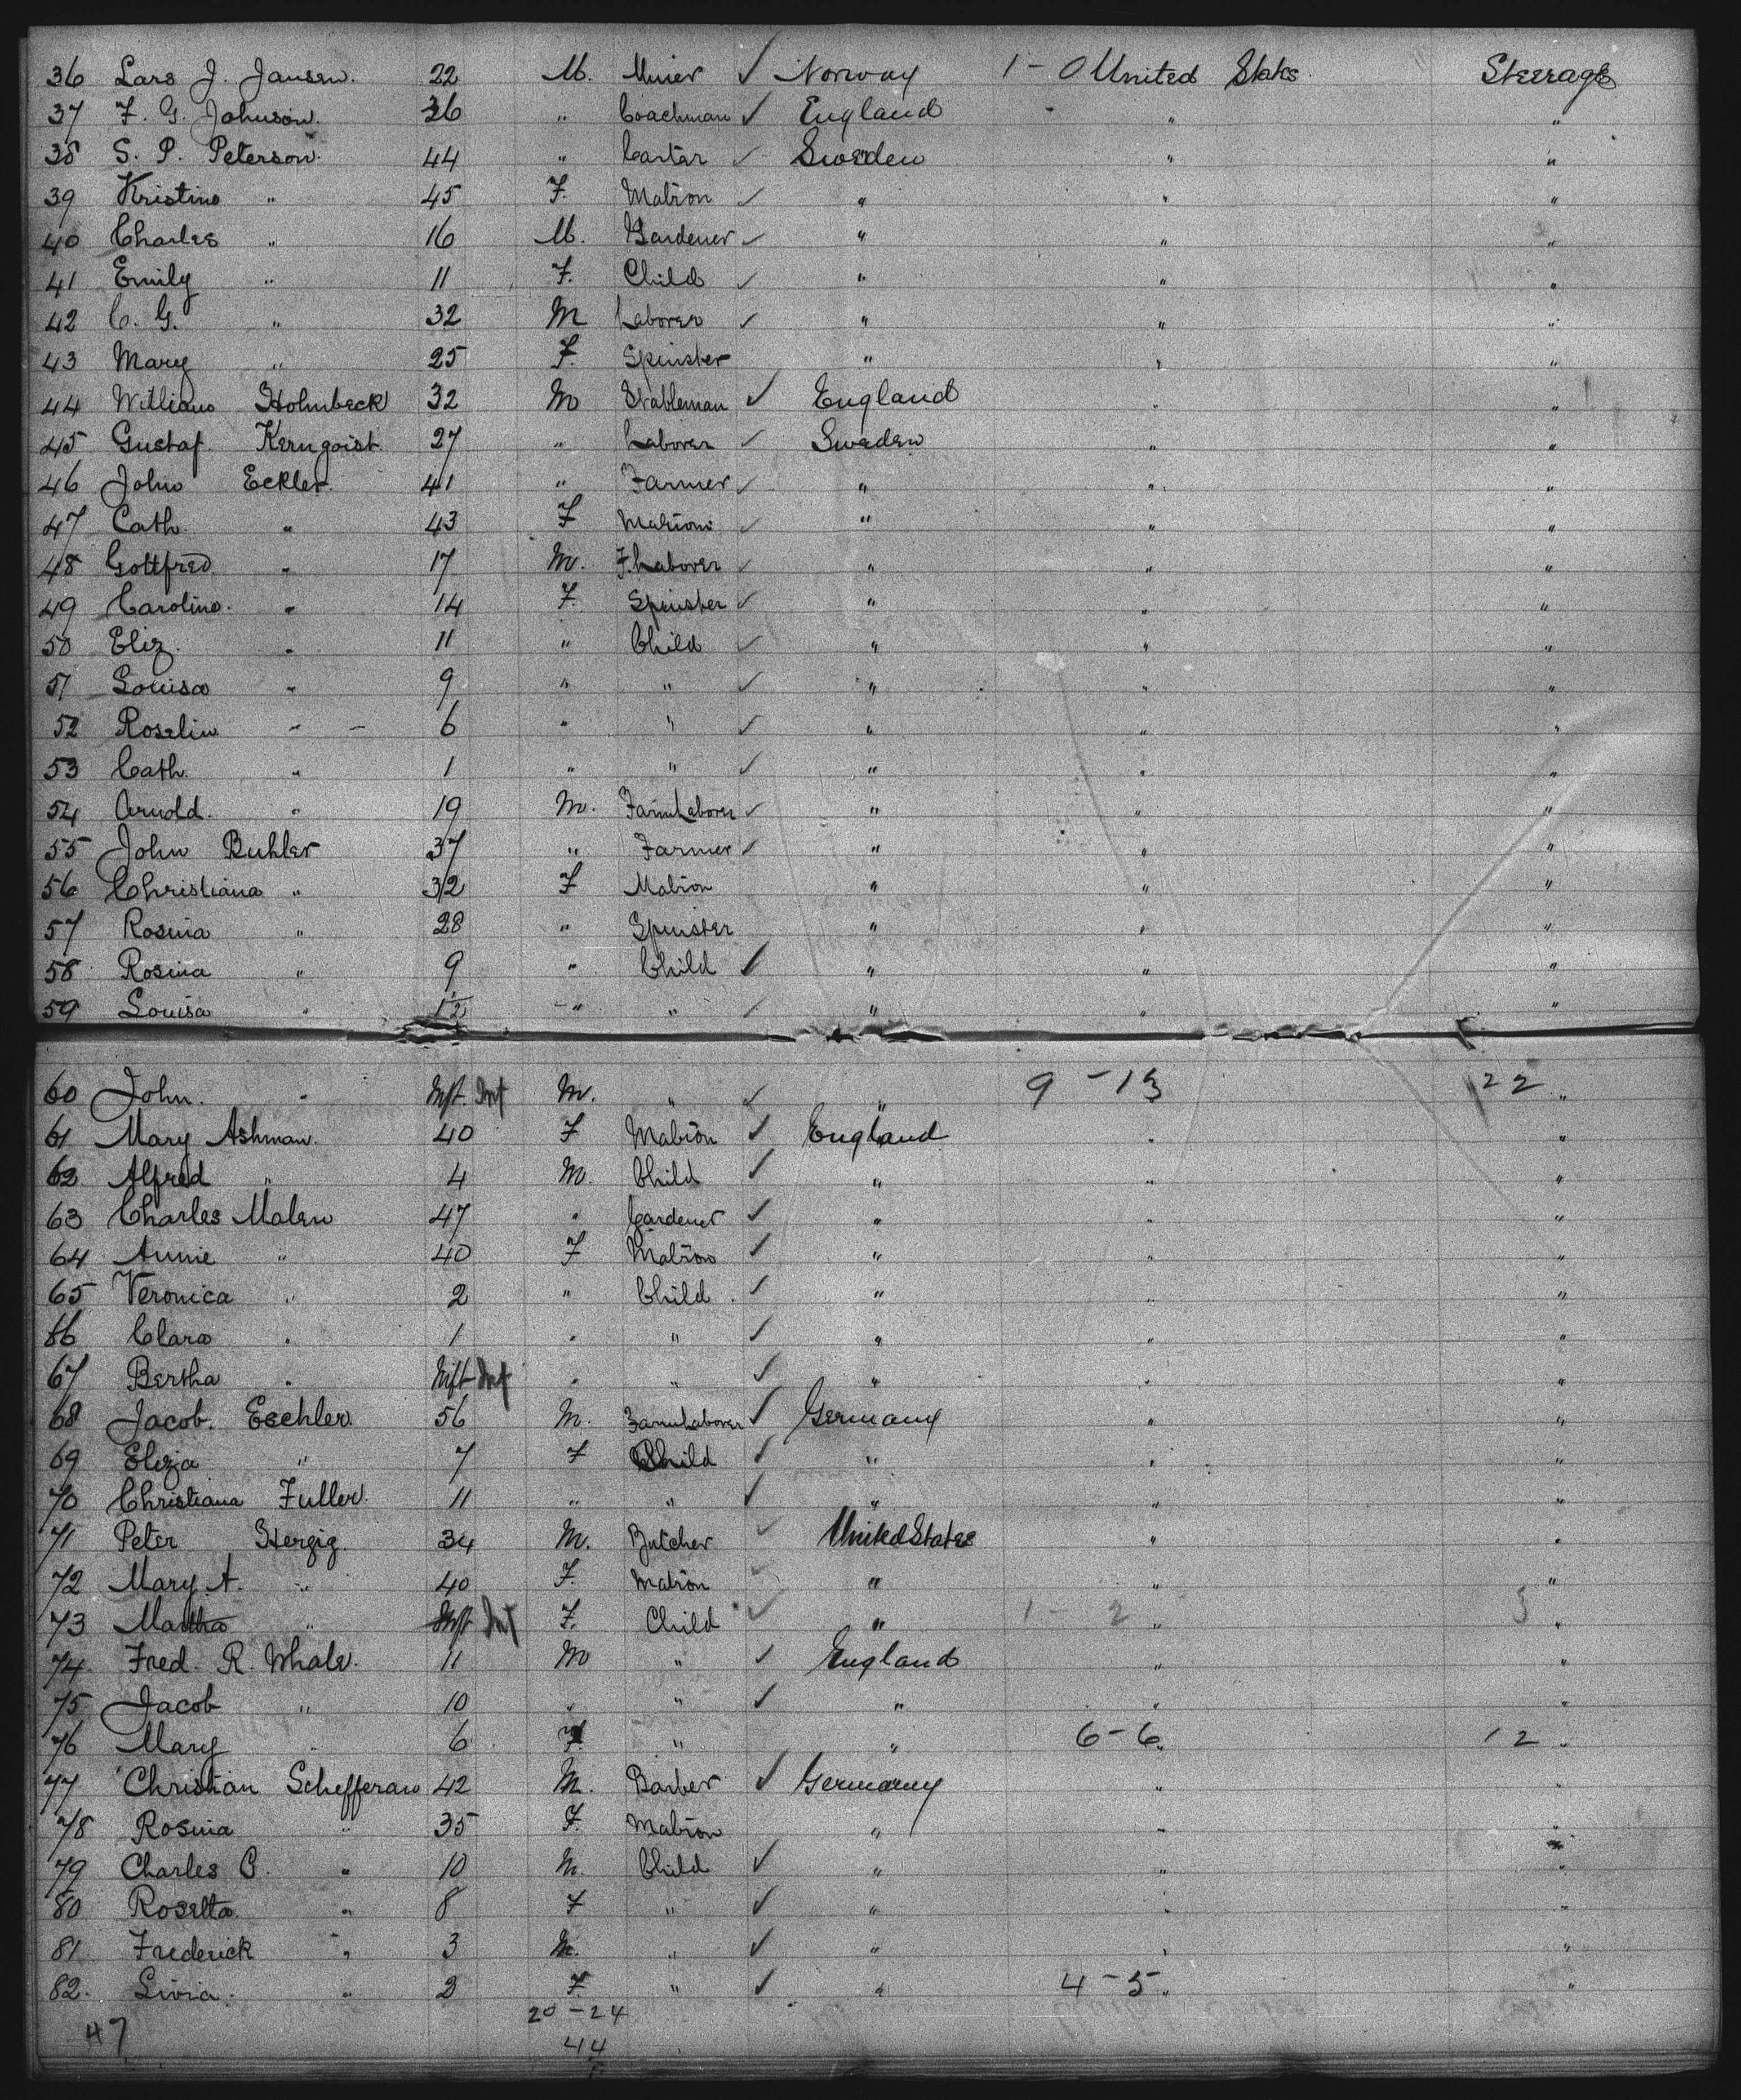 36 Lars J. Jansen. 22 M. Miner ✓ Norway 1 - 0 United States Steerage
37 F. G. Johnson. 36 " Coachman ✓ England " "
38 S. P. Peterson. 44 " Carter ✓ Sweden " "
39 Kristine " 45 F. Matron ✓ " " "
40 Charles " 16 M. Gardener ✓ " " "
41 Emily " 11 F. Child ✓ " " "
42 C. G. " 32 M Laborer ✓ " " "
43 Mary " 25 F. Spinster " " "
44 William Holmbeck 32 M Stableman ✓ England " "
45 Gustaf. Kernqoist 27 " Laborer ✓ Sweden " "
46 John Eckler. 41 " Farmer ✓ " " "
47 Cath. " 43 F Matron ✓ " " "
48 Gottfred " 17 M. F. Laborer ✓ " " "
49 Caroline. " 14 F. Spinster ✓ " " "
50 Eliz. " 11 " Child ✓ " " "
51 Louisa " 9 " " ✓ " " "
52 Roselin " - 6 " " ✓ " " "
53 Cath. " 1 " " ✓ " " "
54 Arnold. " 19 M. Farm Laborer ✓ " " "
55 John Buhler 37 " Farmer ✓ " " "
56 Christiana " 32 F Matron " " "
57 Rosina " 28 " Spinster " " "
58 Rosina " 9 " Child ✓ " " "
59 Louisa " 1½ " " ✓ " " "
60 John. " Inft. Inf M. " ✓ " 9 - 13 22 "
61 Mary Ashman. 40 F Matron ✓ England " "
62 Alfred " 4 M. Child ✓ " " "
63 Charles Malen 47 " Gardener ✓ " " "
64 Annie " 40 F Matron ✓ " " "
65 Veronica " 2 " Child ✓ " " "
66 Clara " 1 " " ✓ " " "
67 Bertha " Inft Inf " " ✓ " " "
68 Jacob. Eschler. 56 M. Farm Laborer ✓ Germany " "
69 Eliza " 7 F Child ✓ " " "
70 Christiana Fuller. 11 " " ✓ " " "
71 Peter Herzig. 34 M. Butcher ✓ United States " "
72 Mary A. " 40 F. Matron ✓ " " "
73 Martha " Inft Inf F. Child ✓ " 1 - 2 " 3 "
74. Fred. R. Whale. 11 M " ✓ England " "
75 Jacob " 10 " " ✓ " " "
76 Mary " 6 F. " " 6 - 6 " 12 "
77 Christian Schefferan 42 M. Barber ✓ Germany " "
78 Rosina " 35 F. Matron " " "
79 Charles C. " 10 M. Child ✓ " " "
80 Rosetta. " 8 F " ✓ " " "
81. Frederick " 3 M. " ✓ " " "
82. Livia. " 2 F. " ✓ " 4 - 5 " "
20 - 24
47 44